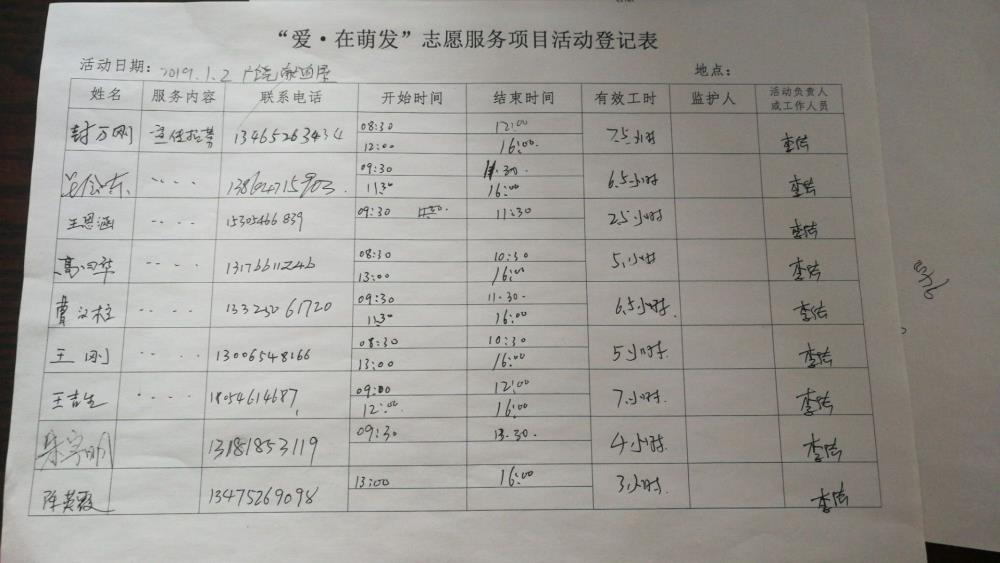 “爱·在萌发”志愿服务项目活动登记表
活动日期: 2019.1.2 地点:
姓名 服务内容 联系电话 开始时间 结束时间 有效工时 监护人 活动负责人或工作人员
封万刚 宣传招募 13465263434 08:30 12:00 7.5小时
12:00 16:00
13864715903 09:30 11:30 6.5小时
11:30 16:00
王恩涵 15305466839 09:30 11:30 2.5小时
08:30 10:30 5小时
13:00 16:00
曹汉柱 13325061720 09:30 11:30 6.5小时
11:30 16:00
王刚 13006548166 08:30 10:30 5小时
13:00 16:00
王吉生 18054614687 09:00 12:00 7小时
12:00 16:00
13181853119 09:30 13:30 4小时
陈英霞 13475269098 13:00 16:00 3小时